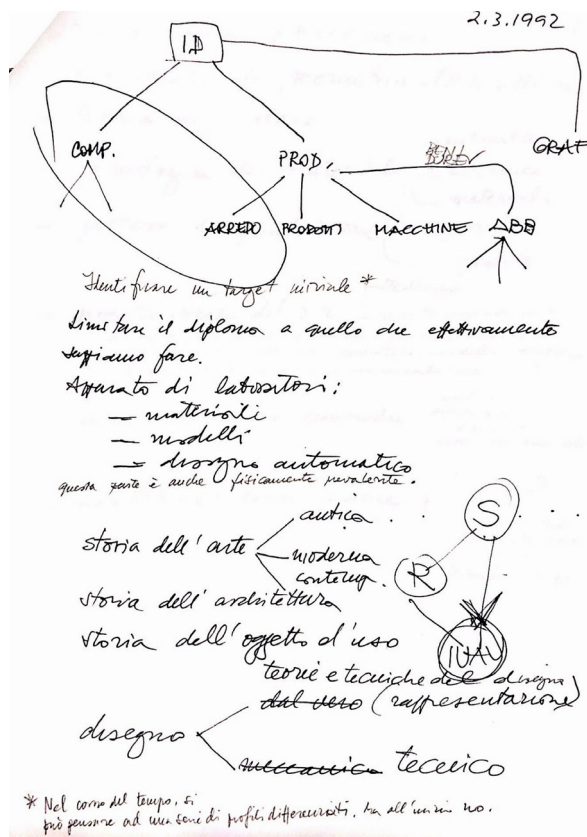 2.3.1992
I.D
COMP.
PROD.
GRAF
ARREDO PRODOTTI MACCHINE ABB
Identificare un target iniziale *
Limitare il diploma a quello che effettivamente
sappiamo fare.
Apparato di laboratori:
– materiali
– modelli
– disegno automatico
questa parte è anche fisicamente prevalente.
antica . . . .
S
storia dell'arte
moderna
contemp.
R
storia dell'architettura
storia dell'oggetto d'uso
IUAV
teorie e tecniche del disegno
dal vero (rappresentazione)
disegno
meccanico tecnico
* Nel corso del tempo, si
può pensare ad una serie di profili differenziati, ma all'inizio no.